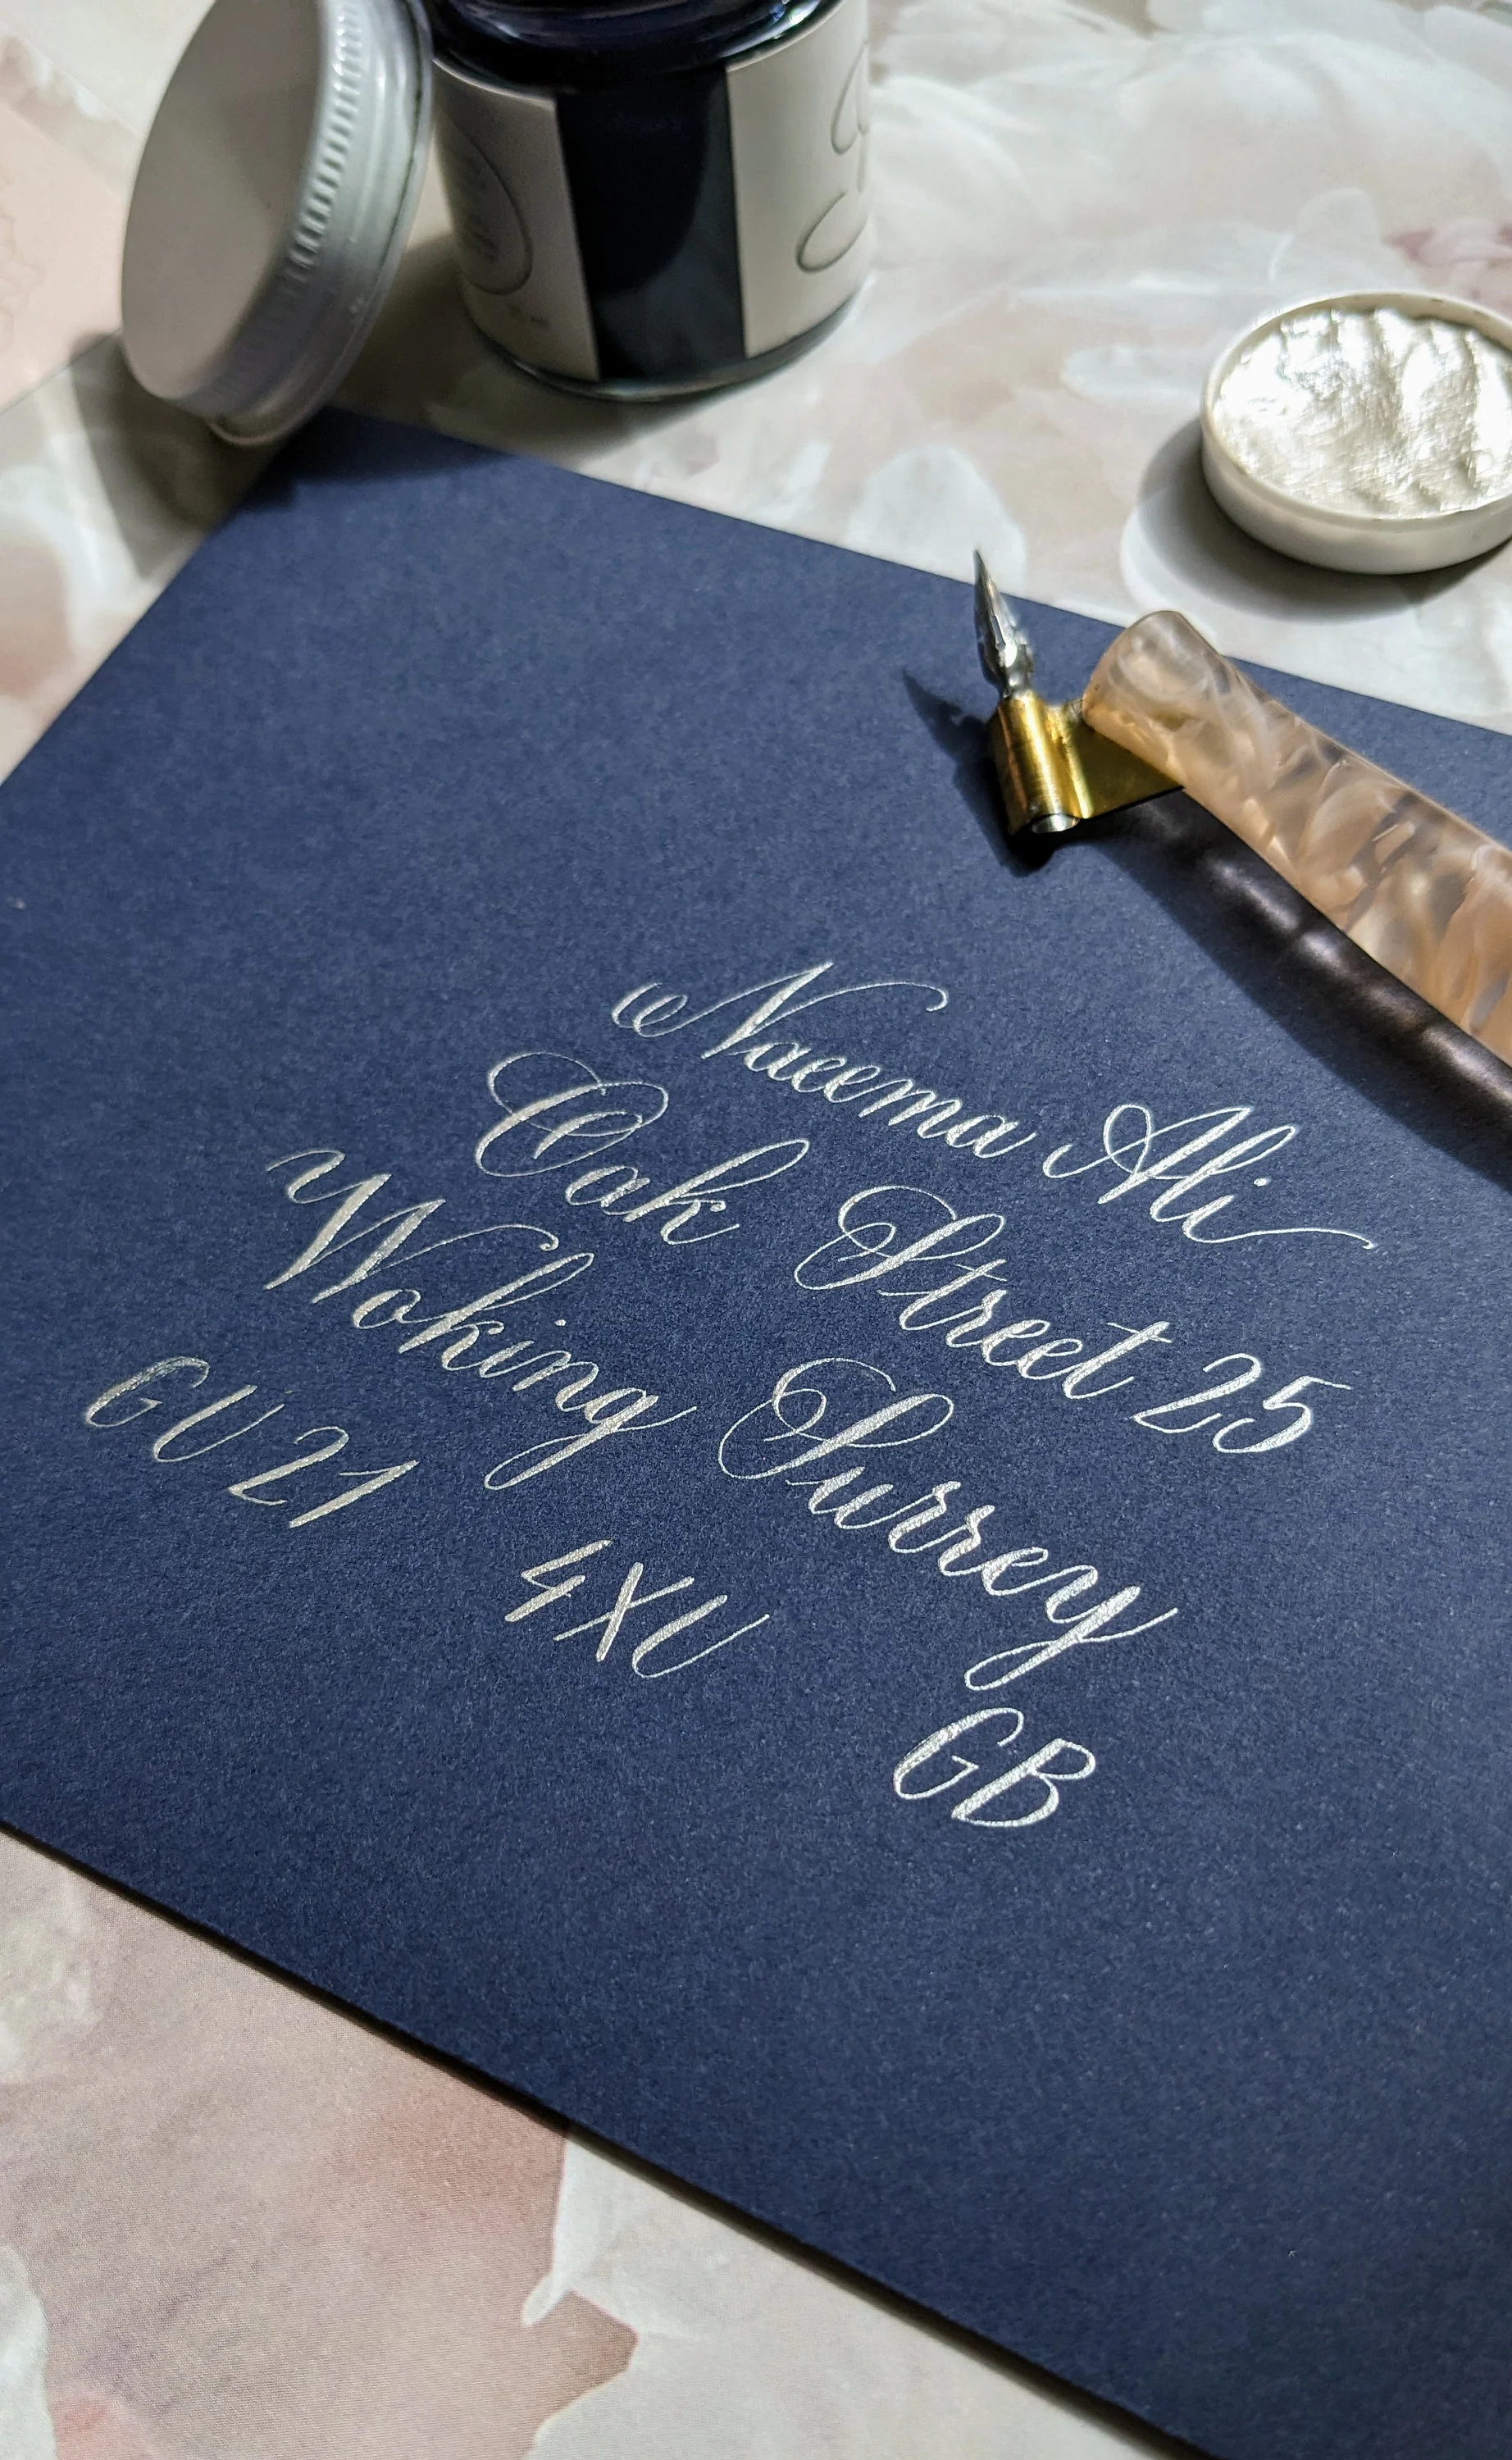 Naeema Ali
Oak Street 25
Woking Surrey
GU21 4XU GB